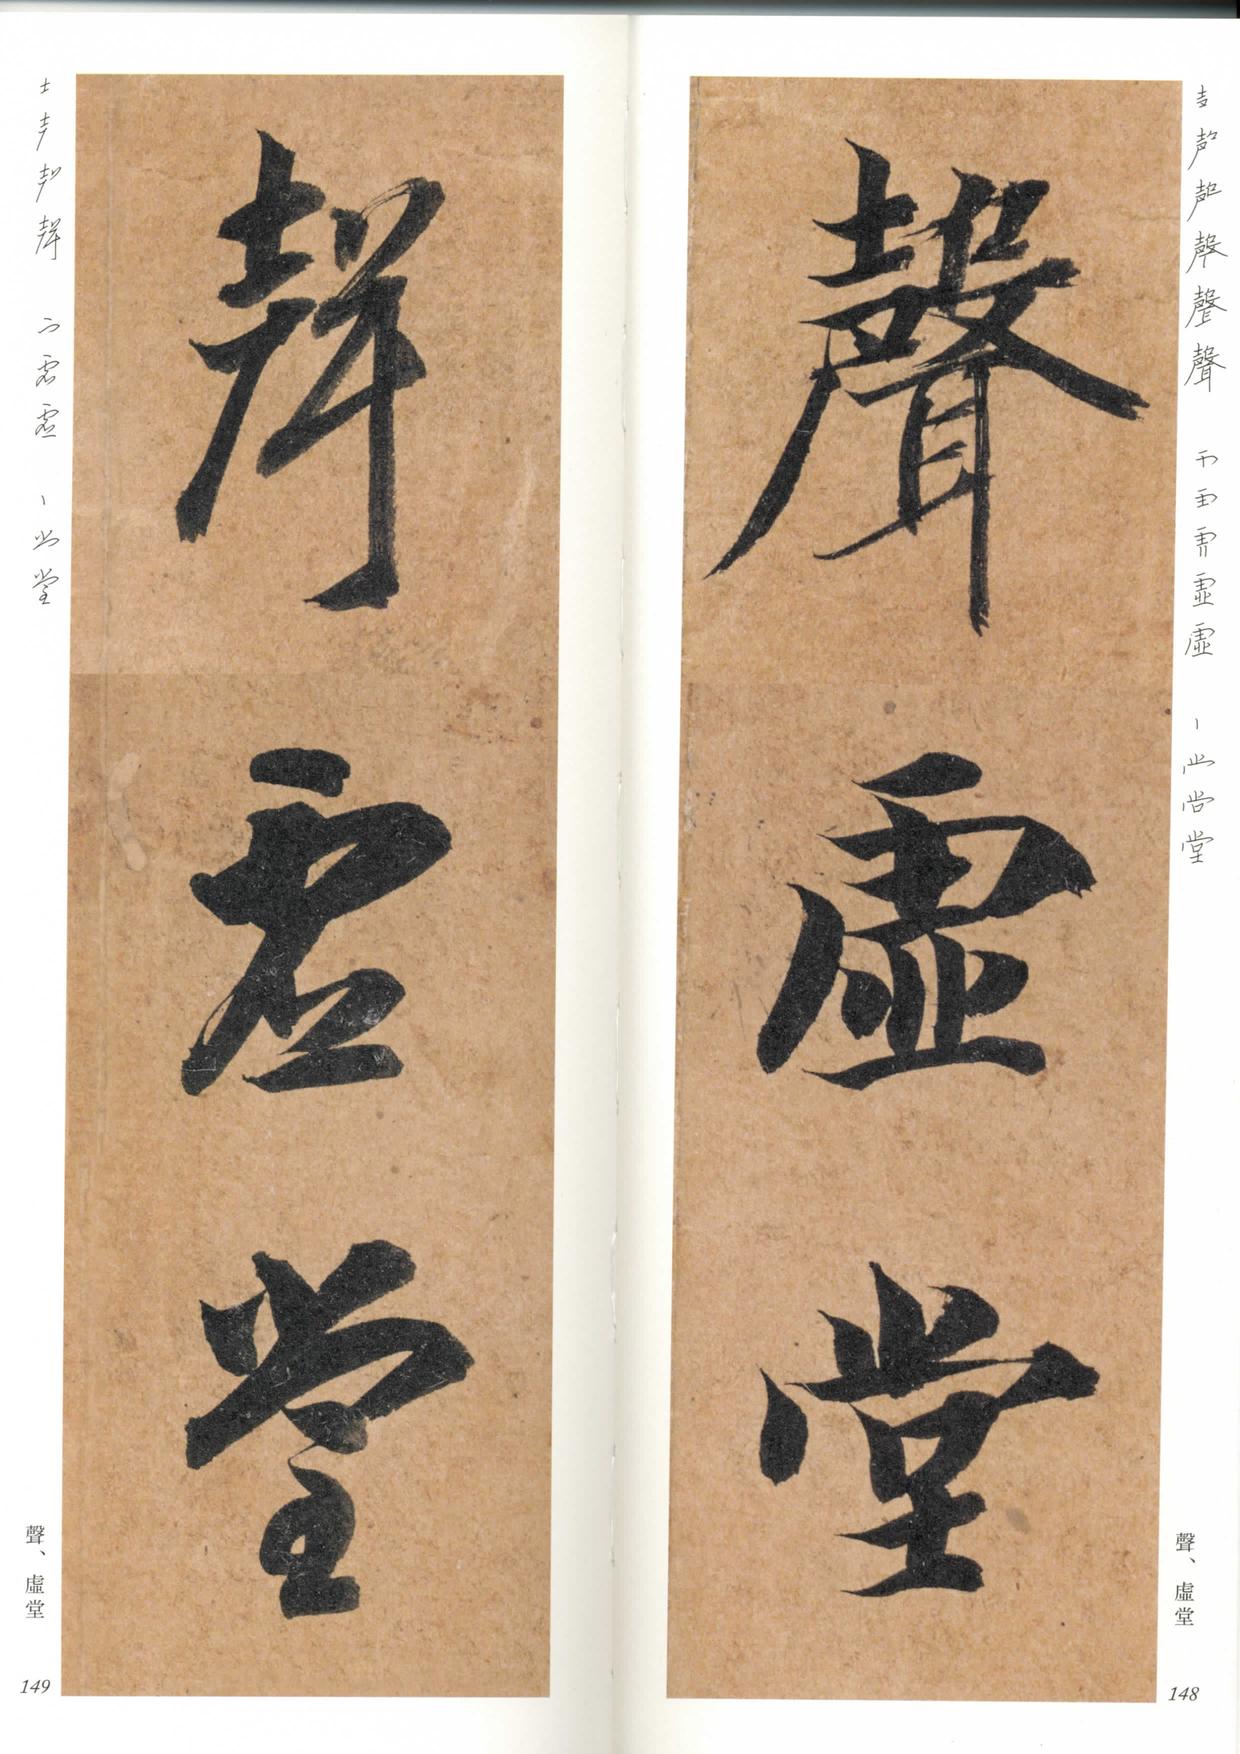 聲虛堂
聲、虛堂
148
聲虛堂
聲、虛堂
149